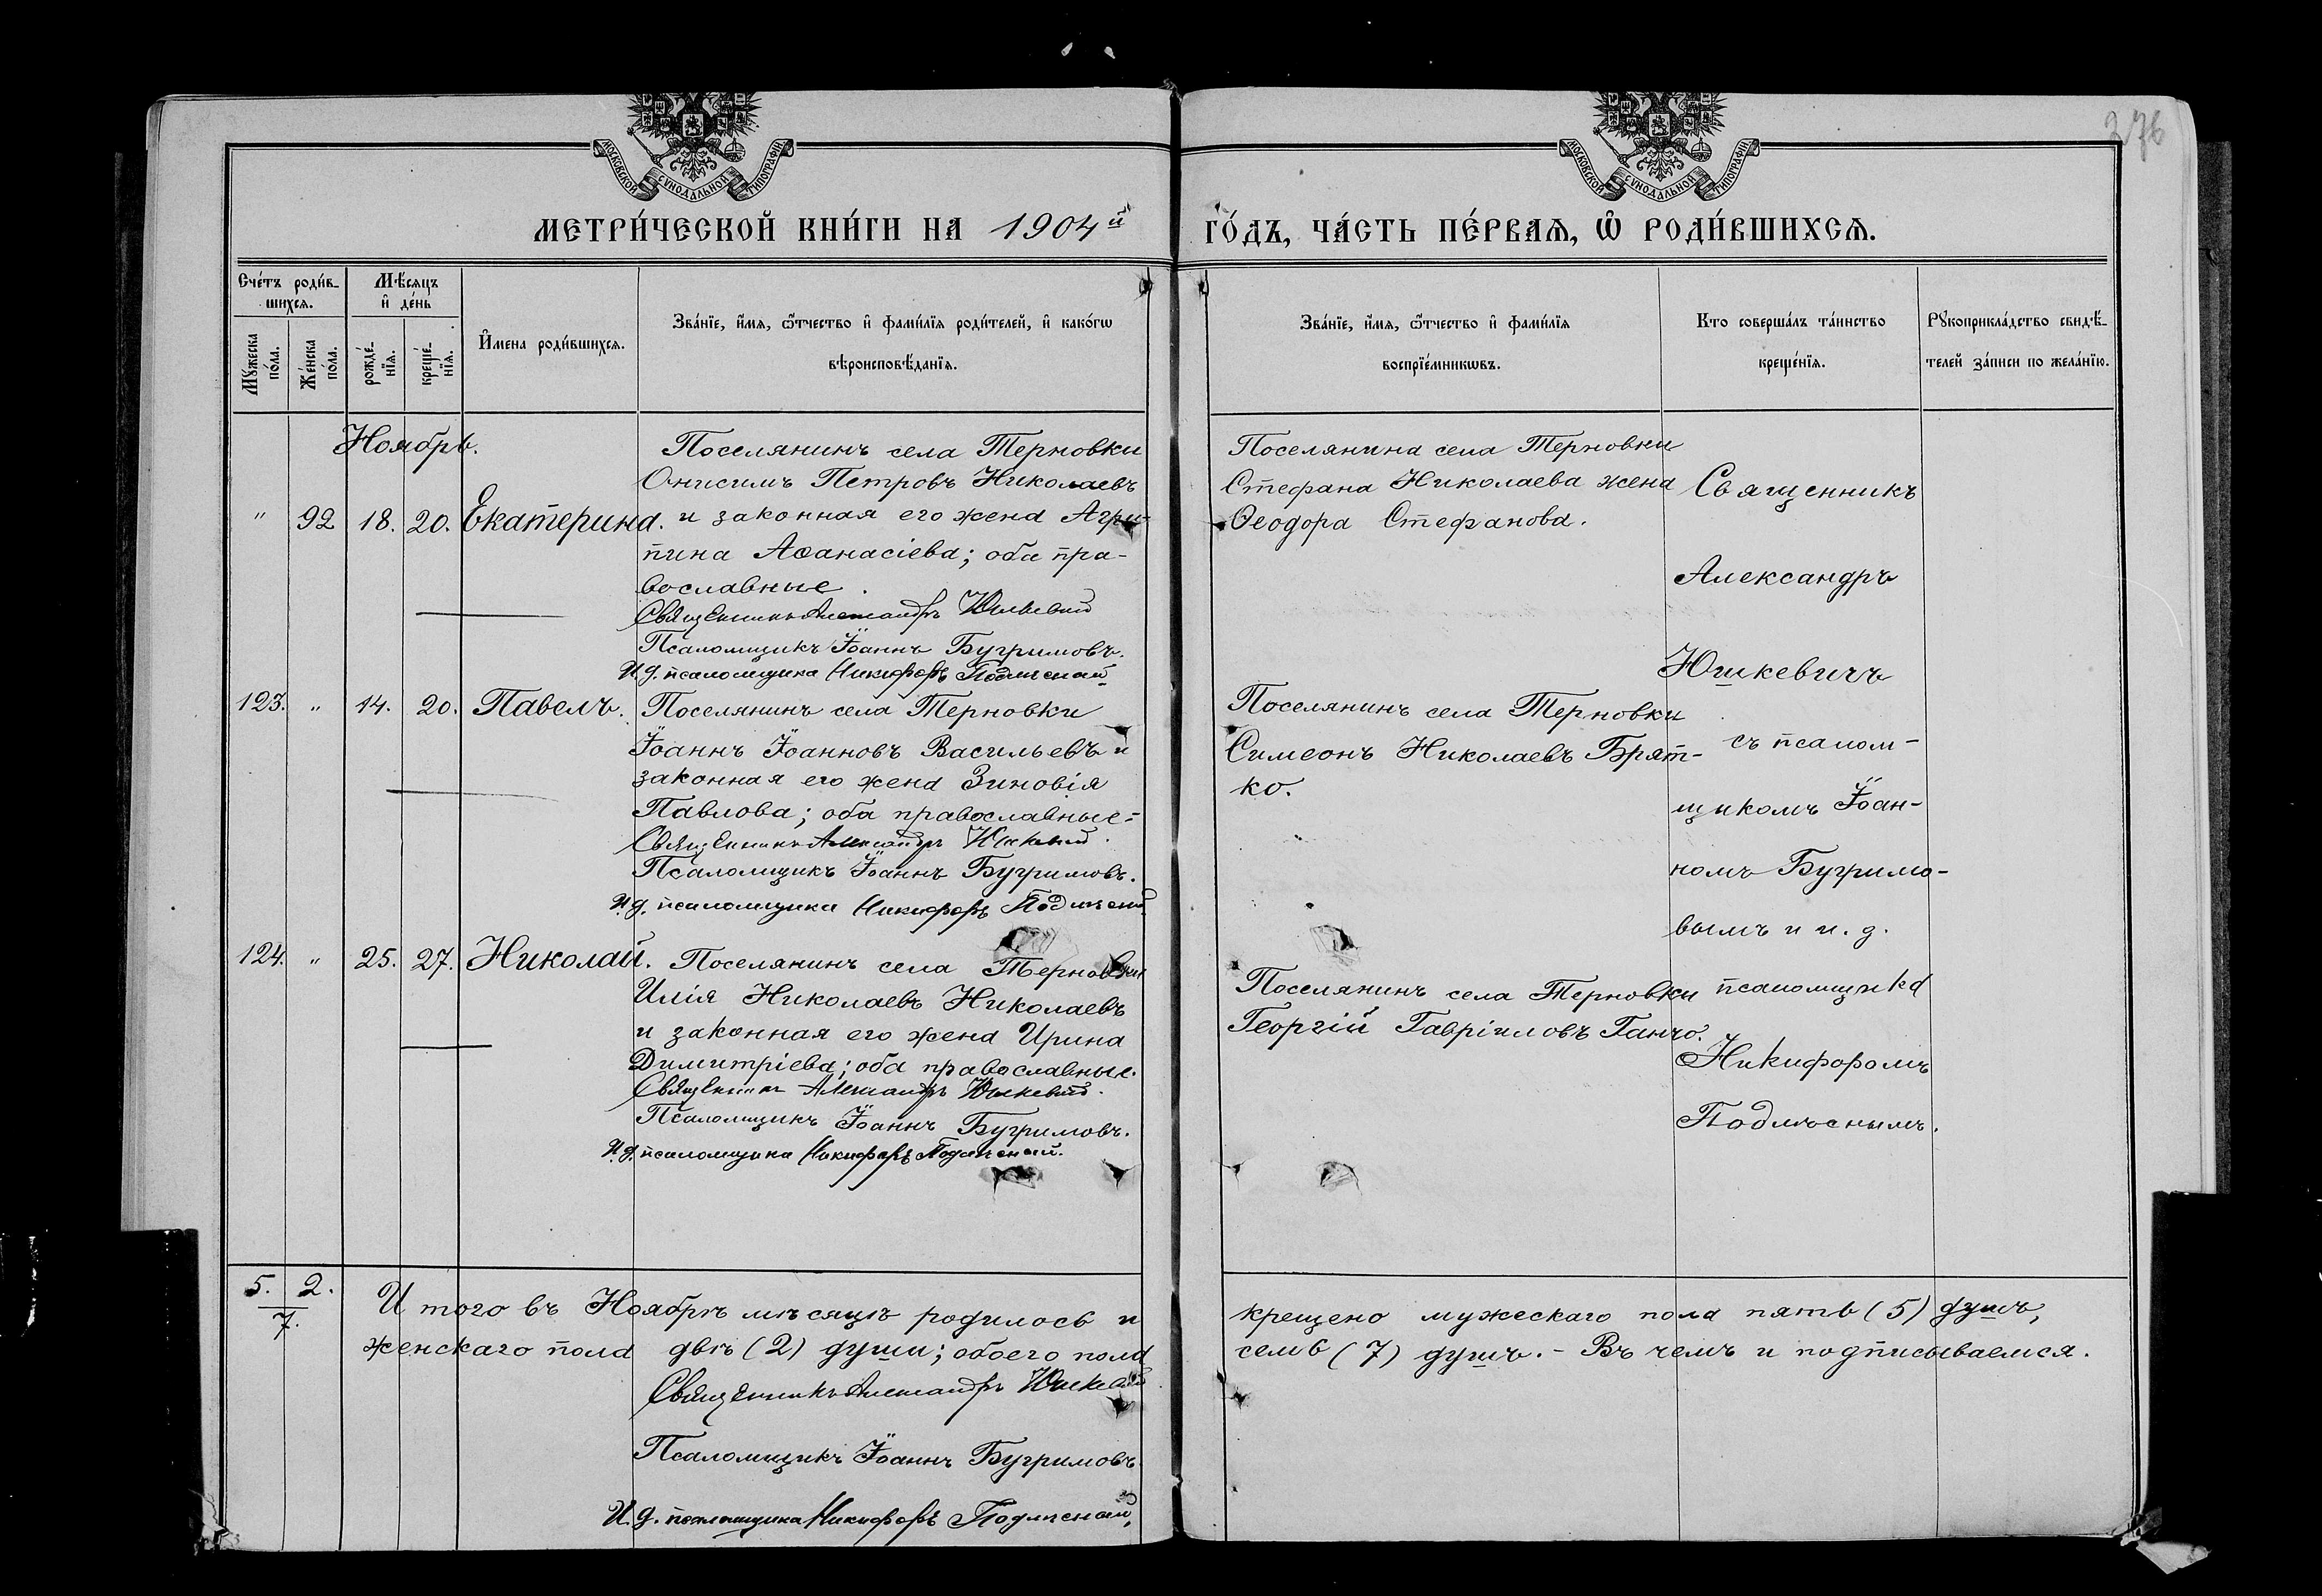 376
МОСКОВСКОЙ СѴНОДАЛЬНОЙ ТИПОГРАФІИ
МОСКОВСКОЙ СѴНОДАЛЬНОЙ ТИПОГРАФІИ
МЕТРИ́ЧЕСКОЙ КНИ́ГИ НА 1904й
ГО́ДЪ, ЧА́СТЬ ПЕ́РВАѦ, Ѽ РОДИ́ВШИХСѦ.
Сче́тъ роди́в-
шихсѧ.
Мꙋжеска по́ла.
Же́нска по́ла.
Мѣ́сѧцъ
и҆ де́нь
рожде́-
нїѧ.
креще́-
нїѧ.
И҆мена роди́вшихсѧ.
Зва́нїе, и҆́мѧ, ѻ҆́тчество и҆ фами́лїѧ роди́телей, и҆ како́гѡ
вѣроисповѣ́данїѧ.
Зва́нїе, и҆́мѧ, ѻ҆́тчество и҆ фами́лїѧ
воспрїе́мникѡвъ.
Кто соверша́лъ та́инство
креще́нїѧ.
Рꙋкоприкла́дство свидѣ́-
телей за́писи по жела́нїю.
Ноябрь.
" 92 18. 20. Екатерина.
Поселянинъ села Терновки
Онисимъ Петровъ Николаевъ
и законная его жена Агри-
пина Аѳанасіева; оба пра-
вославные.
Священникъ Александръ Юшкевичъ
Псаломщикъ Іоаннъ Бугримовъ.
И. д. псаломщика Никифоръ Подлѣсный
Поселянина села Терновки
Стефана Николаева жена
Ѳеодора Стефанова.
123. " 14. 20. Павелъ.
Поселянинъ села Терновки
Іоаннъ Іоанновъ Васильевъ и
законная его жена Зиновія
Павлова; оба православные.
Священникъ Александръ Юшкевичъ.
Псаломщикъ Іоаннъ Бугримовъ.
И. д. псаломщика Никифоръ Подлѣсный
Поселянинъ села Терновки
Симеонъ Николаевъ Брят-
ко.
124. " 25. 27. Николай.
Поселянинъ села Терновки
Илія Николаевъ Николаевъ
и законная его жена Ирина
Димитріева; оба православные.
Священникъ Александръ Юшкевичъ.
Псаломщикъ Іоаннъ Бугримовъ.
И. д. псаломщика Никифоръ Подлѣсный.
Поселянинъ села Терновки
Георгій Гавріиловъ Ганчо.
Священникъ
Александръ
Юшкевичъ
съ псалом-
щикомъ Іоан-
номъ Бугримо-
вымъ и и. д.
псаломщика
Никифоромъ
Подлѣснымъ.
5. 2.
7.
Итого въ Ноябрѣ мѣсяцѣ родилось и крещено мужескаго пола пять (5) душъ,
женскаго пола двѣ (2) души; обоего пола семь (7) душъ. - Въ чемъ и подписываемся.
Священникъ Александръ Юшкевичъ
Псаломщикъ Іоаннъ Бугримовъ
И. д. псаломщика Никифоръ Подлѣсный.